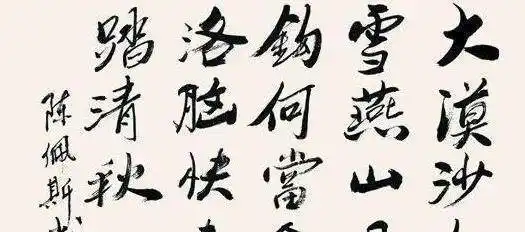 大漠沙
雪燕山
鈎何當
洛脑快
踏清秋
陳佩斯